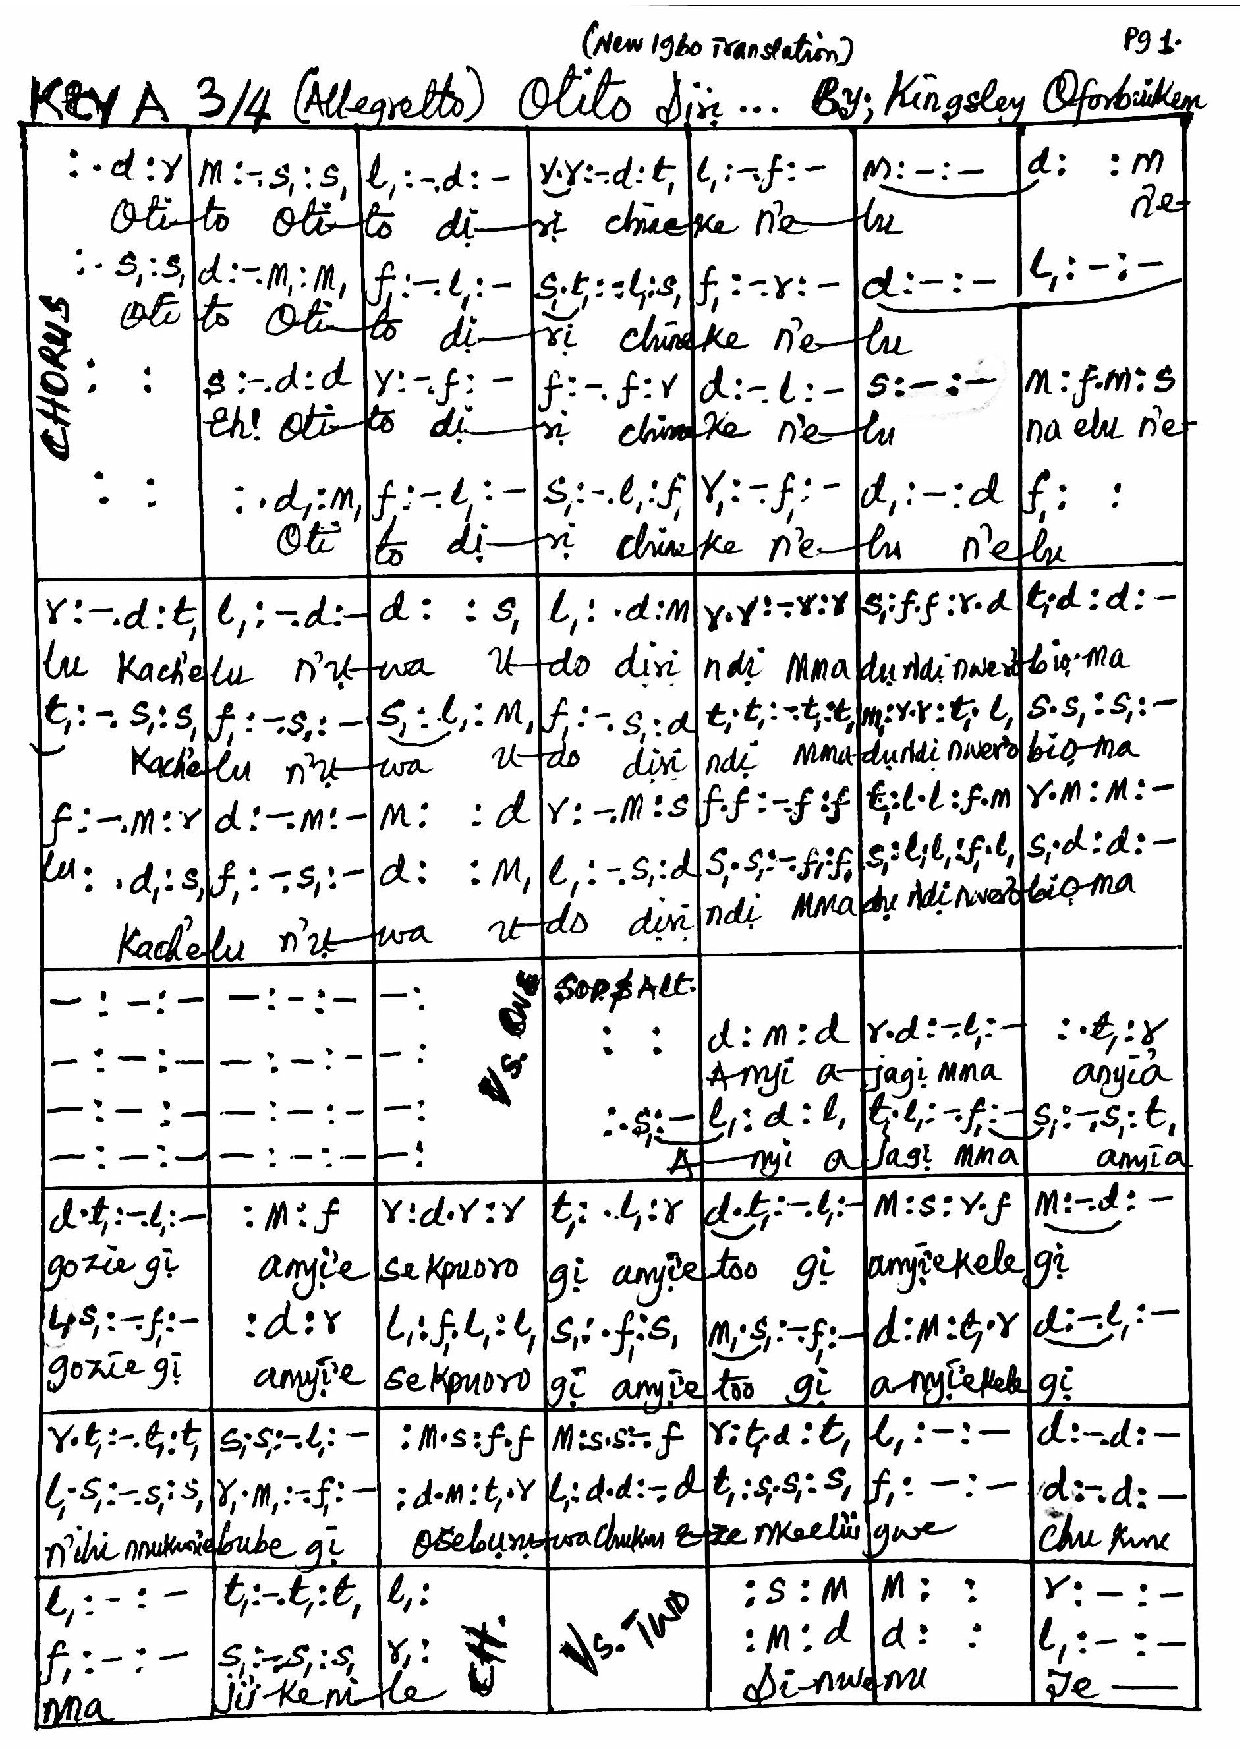 (New Igbo Translation) Pg 1.
KEY A 3/4 (Allegretto) Otito Dịrị ... By; Kingsley
CHORUS
:.d:r m:-.s,:s, l,:-.d:- r.r:-.d:t, l,:-.f:- m:-:- d: :m
Oti-to Oti-to dị-rị chineke n'e-lu n'e-
:.s,:s, d:-.m,:m, f,:-.l,:- s,.t,:-.l,:s, f,:-.r:- d:-:- l,:-:-
Oti to Oti-to dị-rị chineke n'e-lu
: : s:-.d:d r:-.f:- f:-.f:r d:-.l:- s:-:- m:f.m:s
Eh! Oti-to dị-rị chineke n'e-lu na elu n'e-
: : :.d,:m, f,:-.l,:- s,:-.l,:f, r,:-.f,:- d,:-:d f,: :
Oti to dị-rị chineke n'e-lu n'e lu
r:-.d:t, l,:-.d:- d: :s, l,: .d:m r.r:-.r:r s,:f.f:r.d t,.d:d:-
lu Kach'elu n'ụ-wa u-do dịrị ndị Mmadụ Ndị nwere obiọ-ma
t,:-.s,:s, f,:-.s,:- s,:l,:m, f,:-.s,:d t,.t,:-.t,:t, m:r.r:t,.l, s.s,:s,:-
Kach'elu n'ụ-wa u-do dịrị ndị Mmadụ Ndị nwere obiọ-ma
f:-.m:r d:-.m:- m: :d r:-.m:s f.f:-.f:f t,:l.l:f.m r.m:m:-
lu: .d,:s, f,:-.s,:- d: :m, l,:-.s,:d s,.s,:-.f,:f, s,:l,.l,:f,.l, s,.d:d:-
Kach'elu n'ụ-wa u-do dịrị ndị Mmadụ Ndị nwere obiọ-ma
-:-:- -:-:- -: Vs. One Sop & Alt.
: : d:m:d r.d:-.l,:- :.t,:r
-:-:- -:-:- -:
Anyi a-jagị mma anyia
-:-:- -:-:- -: :.s,:- l,:d:l, t,.l,:-.f,:- s,:-.s,:t,
-:-:- -:-:- -: A-nyi a jagị mma anyia
d.t,:-.l,:- :m:f r:d.r:r t,: .l,:r d.t,:-.l,:- m:s:r.f m:-.d:-
gozie gị anyị'e sekpuoro gị anyịe too gị anyịekele gị
l,.s,:-.f,:- :d:r l,:f,.l,:l, s,:.f,:s, m,.s,:-.f,:- d:m:t,.r d:-.l,:-
gozie gị anyị'e sekpuoro gị anyịe too gị a-nyịekele gị
r.t,:-.t,:t, s,.s,:-.l,:- :m.s:f.f m:s.s:-.f r:t,.d:t, l,:-:- d:-.d:-
l,.s,:-.s,:s, r,.m,:-.f,:- :d.m:t,.r l,:d.d:-.d t,:s,.s,:s, f,:-:- d:-.d:-
bube gị Osebụrụwa chukwu Eze nkeeluigwe Chukwu
l,:-:- t,:-.t,:t, l,: CH. Vs. Two :s:m m: : r:-:-
f,:-:- s,:-.s,:s, r,: :m:d d: : l,:-:-
nna jikeni-le Di-nwenu Je —